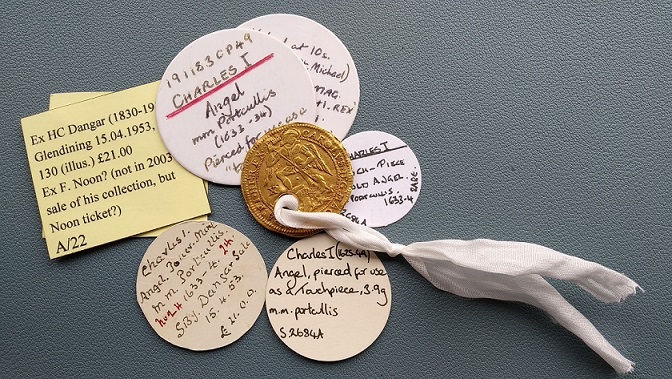 1911830PA9
CHARLES I
Angel
mm Portcullis
(1633-34)
Pierced for use
at 10s.
Michael)
MAG.
REX
Ex HC Dangar (1830-19
Glendining 15.04.1953,
130 (illus.) £21.00
Ex F. Noon? (not in 2003
sale of his collection, but
Noon ticket?)
A/22
CHARLES I
CH-PIECE
OLD ANGEL.
PORTCULLIS.
1633-4 RARE.
Charles I.
Angel
m.m. Portcullis
1633-4.
SBy Dangar Sale
15.4.53.
£21.0.0.
Charles I (1625-49)
Angel, pierced for use
as a Touchpiece, 3.9g
m.m. portcullis
S2684A